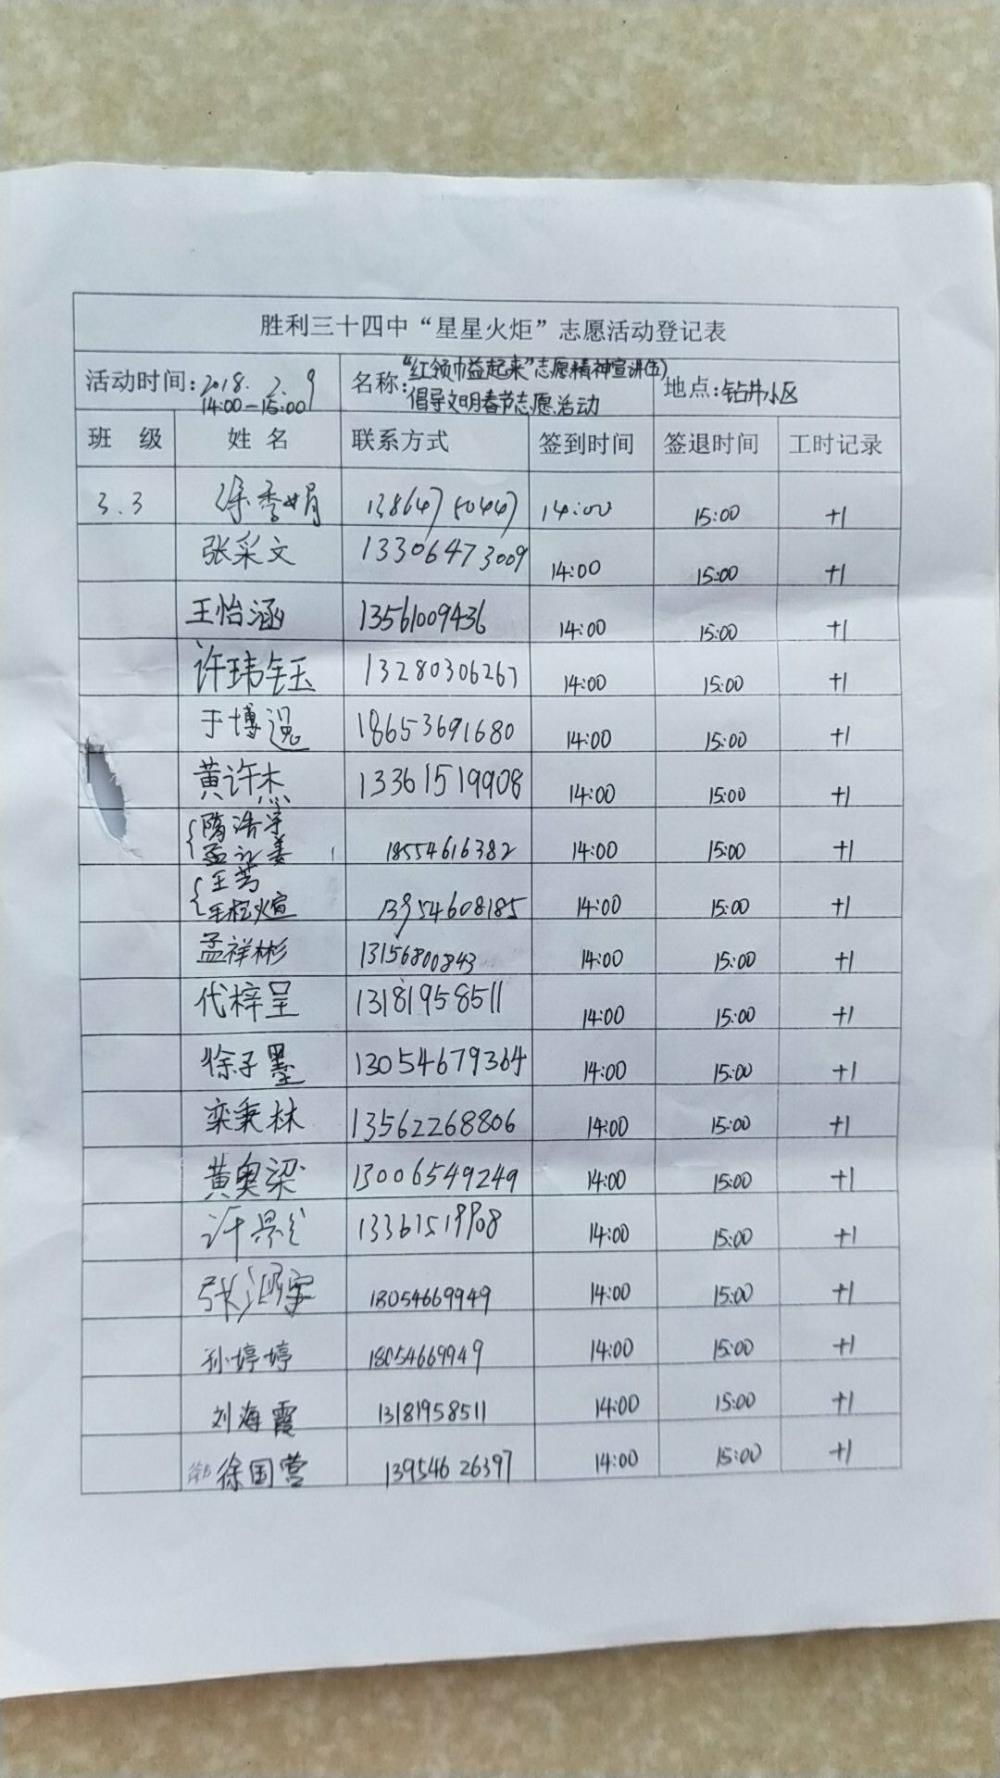 胜利三十四中“星星火炬”志愿活动登记表
活动时间：2018.2.9 14:00-15:00 名称：“红领巾益起来”志愿精神宣讲(五) 倡导文明春节志愿活动 地点：钻井小区
班 级 姓 名 联系方式 签到时间 签退时间 工时记录
3.3 徐秀娟 13864750447 14:00 15:00 +1
张采文 13306473009 14:00 15:00 +1
王怡涵 13561009436 14:00 15:00 +1
许玮钰 13280306267 14:00 15:00 +1
于博逸 18653691680 14:00 15:00 +1
黄许杰 13361519908 14:00 15:00 +1
隋浩宇
孟 姜 18554616382 14:00 15:00 +1
王芳
煊 13954608185 14:00 15:00 +1
孟祥彬 13156800843 14:00 15:00 +1
代梓呈 13181958511 14:00 15:00 +1
徐子墨 13054679364 14:00 15:00 +1
栾秉林 13562268806 14:00 15:00 +1
黄奥梁 13006549249 14:00 15:00 +1
许 13361519908 14:00 15:00 +1
张鸿宇 18054669949 14:00 15:00 +1
孙婷婷 18054669949 14:00 15:00 +1
刘海霞 13181958511 14:00 15:00 +1
徐国营 13954626397 14:00 15:00 +1